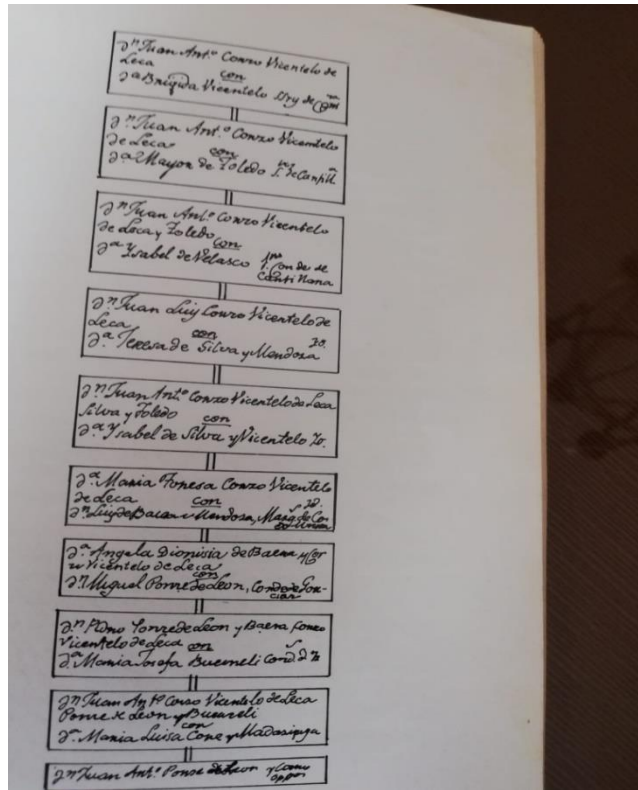 Dn Juan Anto Corzo Vicentelo de
Leca
con
Da Brigida Vicentelo
Dn Juan Anto Corzo Vicentelo
de Leca
con
Da Mayor de Toledo
Dn Juan Anto Corzo Vicentelo
de Leca y Toledo
con
Da Ysabel de Velasco
Conde de
Cantillana
Dn Juan Luis Corzo Vicentelo de
Leca
con
Da Teresa de Silva y Mendosa
Dn Juan Anto Corzo Vicentelo de Leca
Silva y Toledo
con
Da Ysabel de Silva y Vicentelo
Da Maria Corzo Vicentelo
de Leca
con
Dn Luis de Baena y Mendosa
Da Angela Dionisia de Baena y Cor
zo Vicentelo de Leca
con
Dn Miguel Ponze de Leon, Conde de
Dn Pedro Ponze de Leon y Baena
Vicentelo de Leca
con
Da Maria Josefa Bucareli Cond.
Dn Juan Anto Corzo Vicentelo de Leca
Ponze de Leon y Bucareli
con
Da Maria Luisa
Dn Juan Anto Ponze de Leon